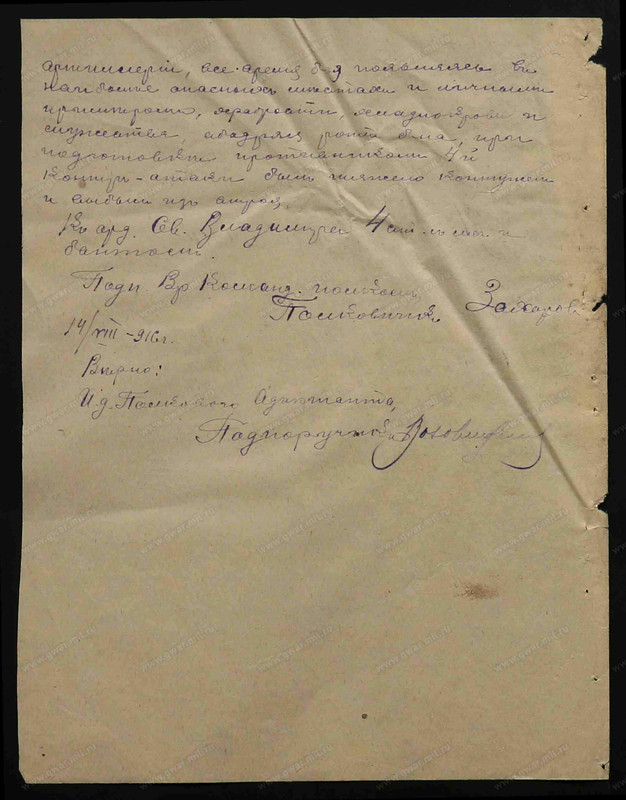 артиллеріи, все время боя появляясь въ
наиболѣе опасныхъ мѣстахъ и личнымъ
примѣромъ, храбрости, хладнокровія и
мужества, ободряя роты б-на, при
подготовкѣ противникомъ 4й
контръ-атаки былъ тяжело контуженъ
и выбылъ изъ строя.
Къ орд. Св. Владиміра 4 ст. съ меч. и
бантомъ.
Подп Вр Команд. полкомъ
Полковникъ
14/VIII-916г.
Вѣрно:
И.д. Полкового Адъютанта,
Подпоручикъ
www.gwar.mil.ru